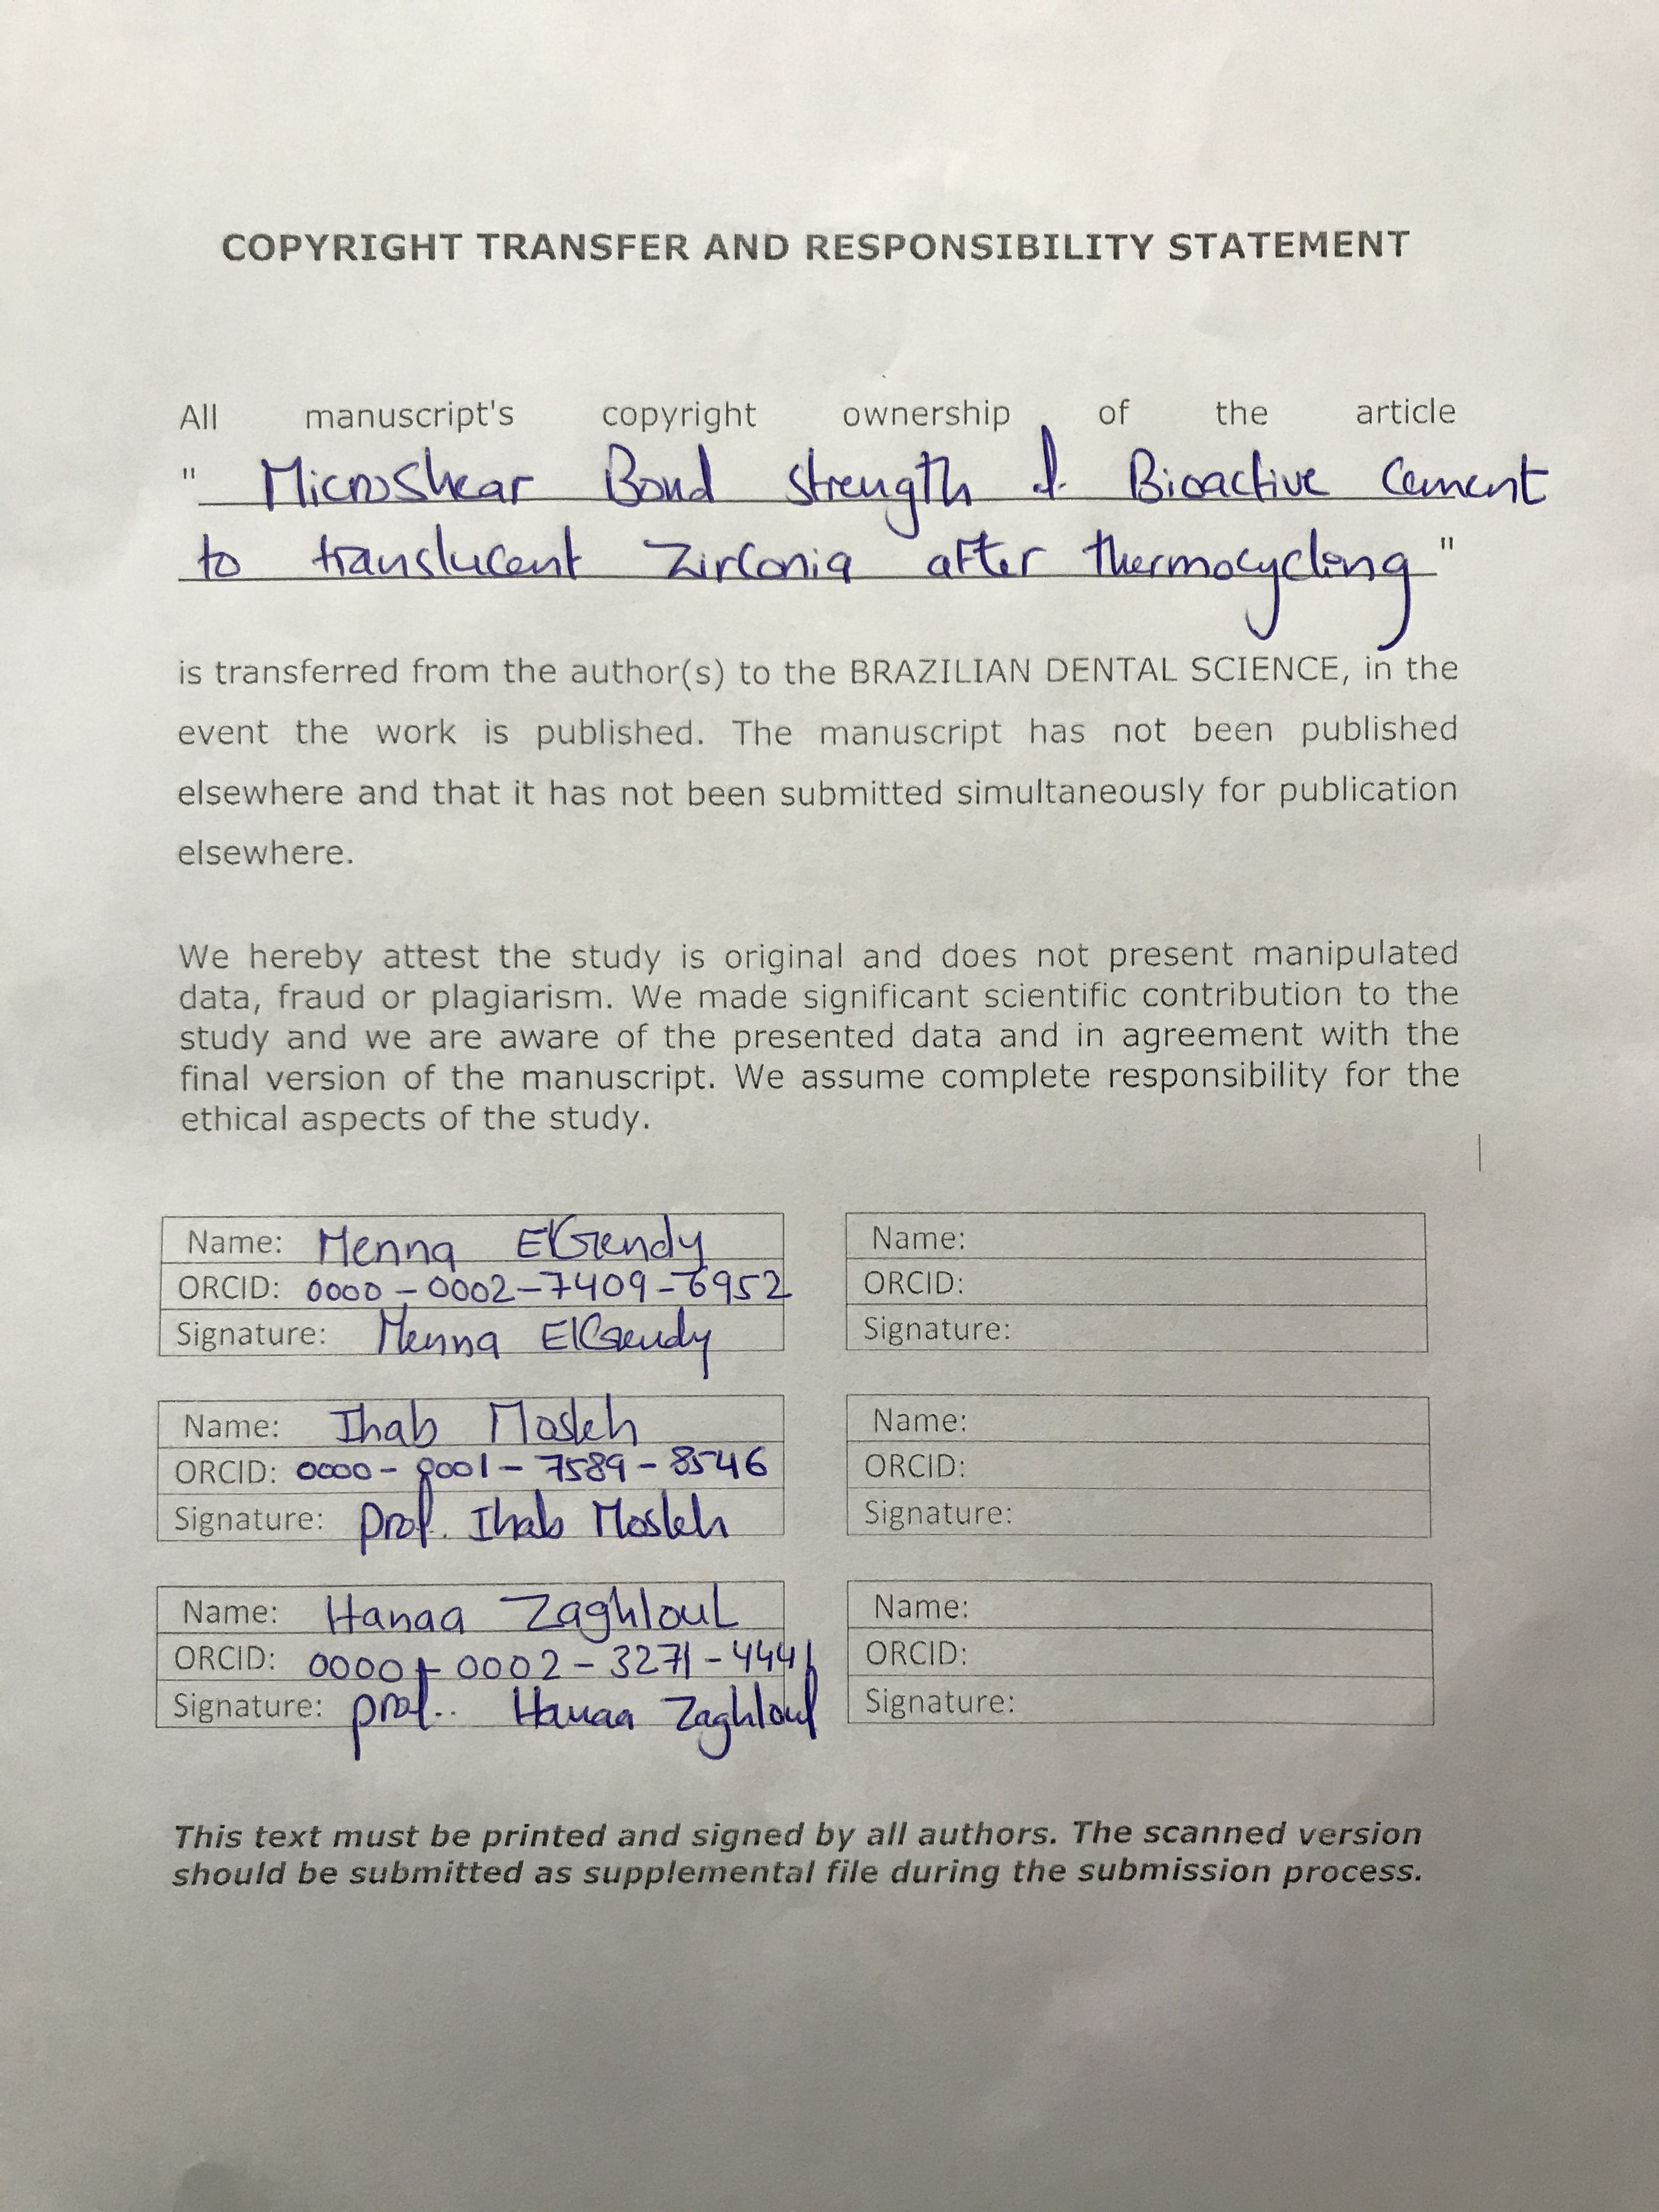 COPYRIGHT TRANSFER AND RESPONSIBILITY STATEMENT
All manuscript's copyright ownership of the article
" Microshear Bond strength of Bioactive Cement
to translucent Zirconia after thermocycling "
is transferred from the author(s) to the BRAZILIAN DENTAL SCIENCE, in the
event the work is published. The manuscript has not been published
elsewhere and that it has not been submitted simultaneously for publication
elsewhere.
We hereby attest the study is original and does not present manipulated
data, fraud or plagiarism. We made significant scientific contribution to the
study and we are aware of the presented data and in agreement with the
final version of the manuscript. We assume complete responsibility for the
ethical aspects of the study.
Name: Menna ElGendy
ORCID: 0000-0002-7409-6952
Signature: Menna ElGendy
Name:
ORCID:
Signature:
Name: Ihab Mosleh
ORCID: 0000-0001-7589-8546
Signature: Prof. Ihab Mosleh
Name:
ORCID:
Signature:
Name: Hanaa Zaghloul
ORCID: 0000-0002-3271-4441
Signature: prof.. Hanaa Zaghloul
Name:
ORCID:
Signature:
This text must be printed and signed by all authors. The scanned version
should be submitted as supplemental file during the submission process.